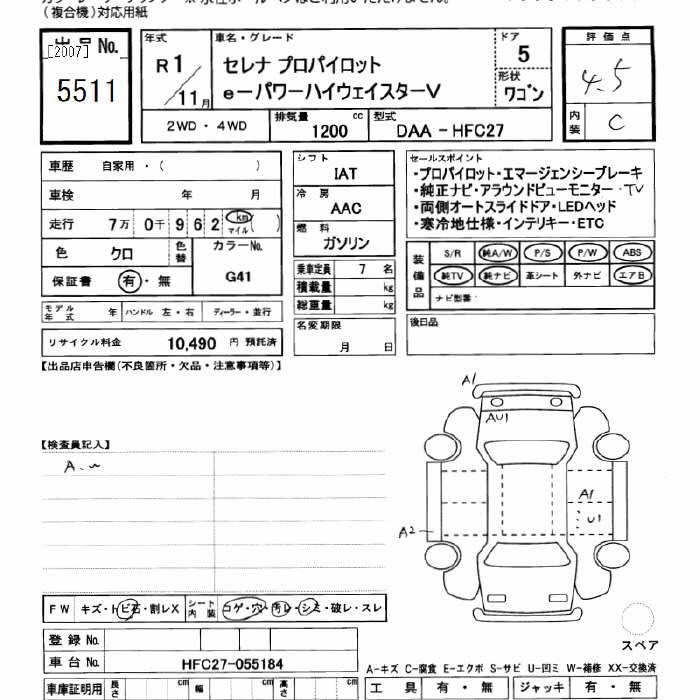 (複合機)対応用紙
出品No.
[2007]
5511
年式
R1/11月
車名・グレード
セレナ プロパイロット
e-パワーハイウェイスターV
ドア
5
形状
ワゴン
評価点
4.5
内装
C
2WD・4WD
排気量
1200 cc
型式
DAA-HFC27
車歴 自家用・( )
車検 年 月
走行 7万 0千 9 6 2 km マイル ( )
色 クロ
色替
カラーNo.
G41
保証書 有・無
モデル年式 年
ハンドル 左・右
ディーラー・並行
リサイクル料金 10,490 円 預託済
シフト
IAT
冷房
AAC
燃料
ガソリン
乗車定員 7 名
積載量 kg
総重量 kg
名変期限
月 日
セールスポイント
・プロパイロット・エマージェンシーブレーキ
・純正ナビ・アラウンドビューモニター・TV
・両側オートスライドドア・LEDヘッド
・寒冷地仕様・インテリキー・ETC
装備品
S/R 純A/W P/S P/W ABS
純TV 純ナビ 革シート 外ナビ エアB
ナビ型番:
後日品
【出品店申告欄(不良箇所・欠品・注意事項等)】
【検査員記入】
A1
AU1
A1
U1
A2
FW キズ・トビ石・割レX
シート内装 コゲ・穴・汚レ・シミ・破レ・スレ
登録No.
車台No. HFC27-055184
車庫証明用 長さ cm 幅 cm 高さ cm
スペア
A-キズ C-腐食 E-エクボ S-サビ U-凹ミ W-補修 XX-交換済
工具 有・無 ジャッキ 有・無